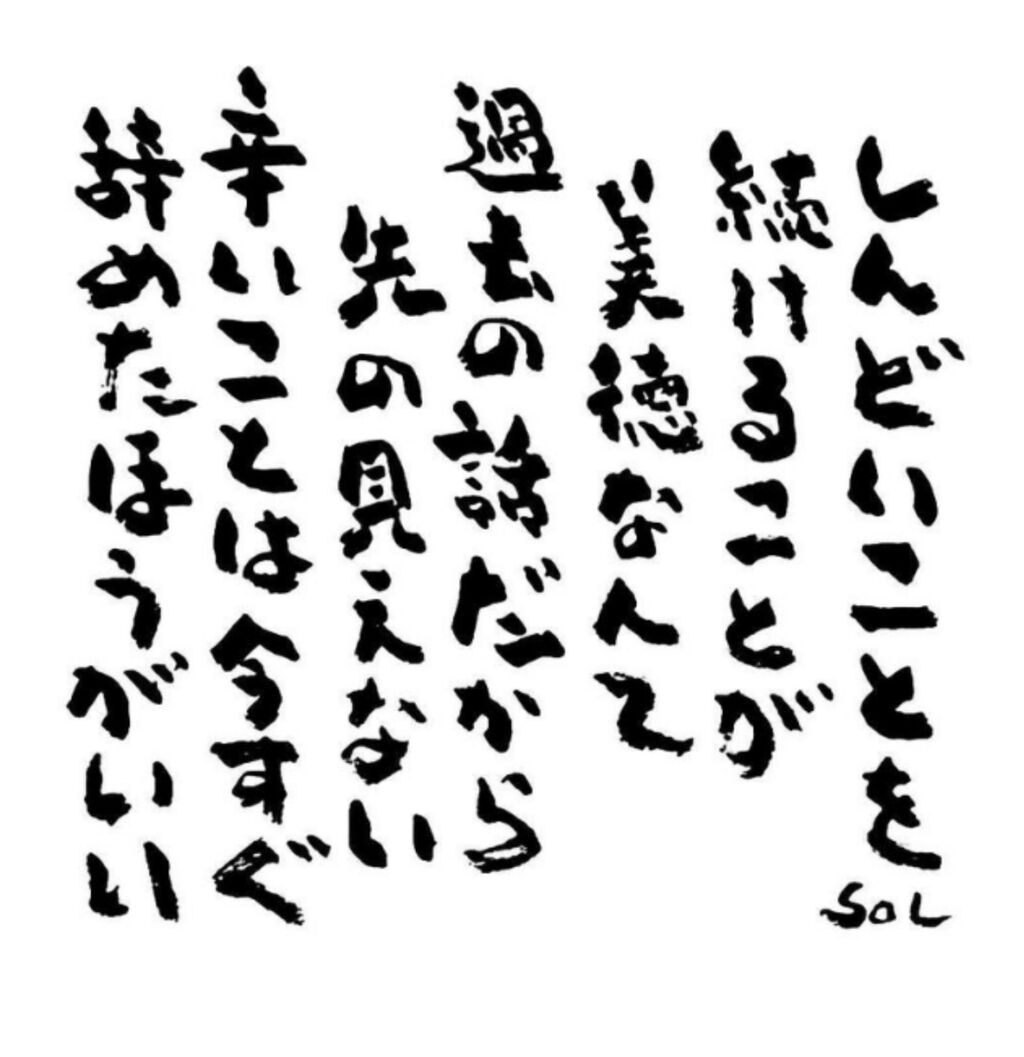 しんどいことを
続けることが
美徳なんて
過去の話だから
先の見えない
辛いことは今すぐ
辞めたほうがいい
SOL